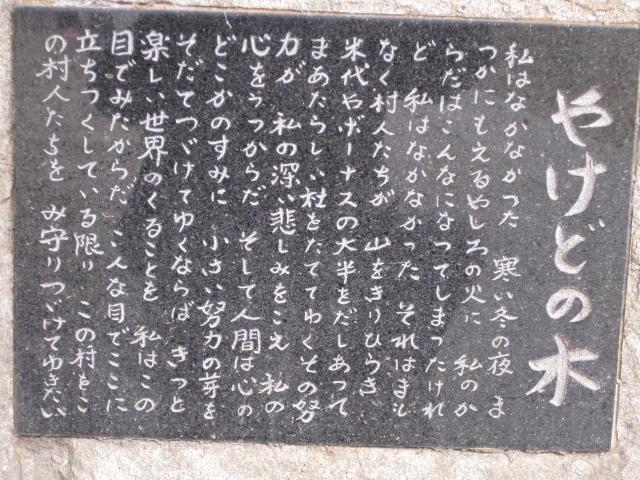 やけどの木
私はなかなかった 寒い冬の夜 ま
つかにもえるやしろの火に 私のか
らだはこんなになってしまったけれ
ど 私はなかなかった それはまも
なく村人たちが 山をきりひらき
米代やボーナスの大半をだしあって
まあたらしい社をたててゆくその努
力が 私の深い悲しみをこえ 私の
心をうつからだ そして人間は心の
どこかのすみに 小さい努力の芽を
そだてつづけてゆくならば きっと
楽しい世界のくることを 私はこの
目でみたからだ こんな目でここに
立ちつくしている限り この村をこ
の村人たちを み守りつづけてゆきたい